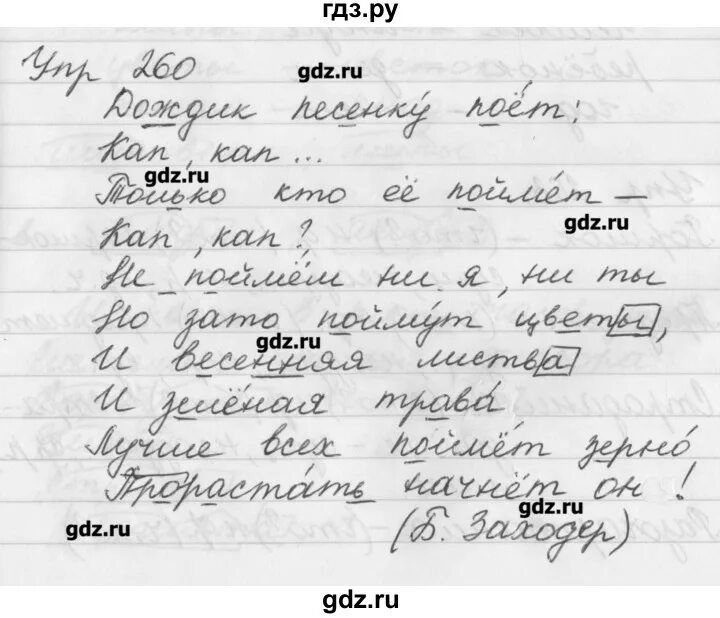 гдз.ру
Упр 260
gdz.ru
Дождик песенку поёт:
Кап, кап...
gdz.ru
Только кто её поймёт —
gdz.ru
Кап, кап?
Не поймём ни я, ни ты
Но зато поймут цветы,
gdz.ru
И весенняя листва
И зелёная трава,
Лучше всех поймёт зерно
gdz.ru
Прорастать начнёт он!
gdz.ru
gdz.ru
(Б. Заходер)
gdz.ru